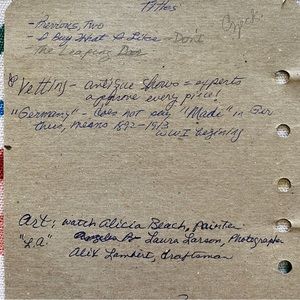 Titles
Check!
- Previous, Two
- I Buy What I Like - Don't
- The Leaping Doe
Vetting - antique shows = experts
approve every piece!
"Germany" - does not say "Made" in Ger
thus, means 1892-1913
WWI begining
Art: watch Alicia Beach, painter
"L.A." Laura Larson, Photographer
Alix Lambert, Craftsman